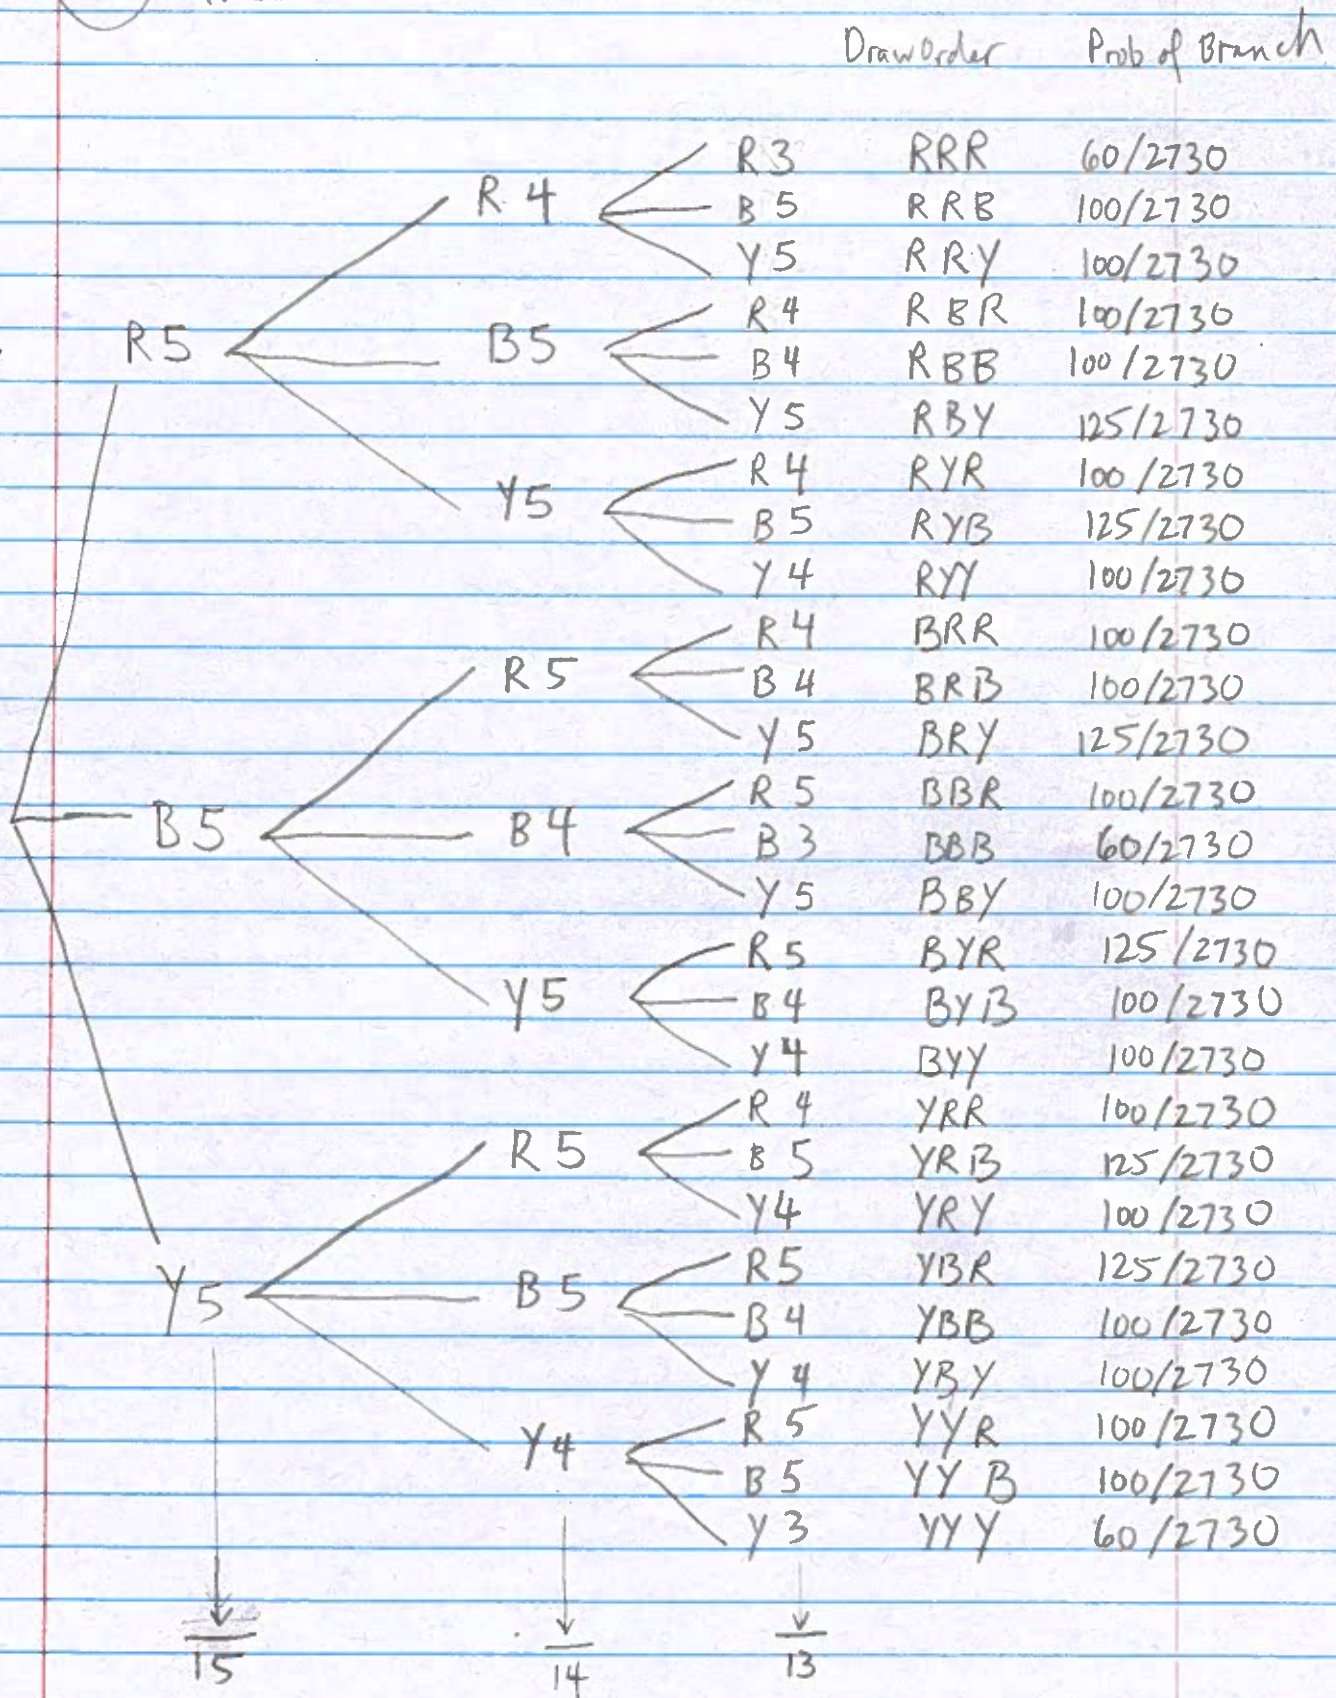 Draw Order Prob of Branch
R3 RRR 60/2730
R4 B5 RRB 100/2730
Y5 RRY 100/2730
R4 RBR 100/2730
R5 B5 B4 RBB 100/2730
Y5 RBY 125/2730
R4 RYR 100/2730
Y5 B5 RYB 125/2730
Y4 RYY 100/2730
R4 BRR 100/2730
R5 B4 BRB 100/2730
Y5 BRY 125/2730
R5 BBR 100/2730
B5 B4 B3 BBB 60/2730
Y5 BBY 100/2730
R5 BYR 125/2730
Y5 B4 BYB 100/2730
Y4 BYY 100/2730
R4 YRR 100/2730
R5 B5 YRB 125/2730
Y4 YRY 100/2730
R5 YBR 125/2730
Y5 B5 B4 YBB 100/2730
Y4 YBY 100/2730
R5 YYR 100/2730
Y4 B5 YYB 100/2730
Y3 YYY 60/2730
15 14 13